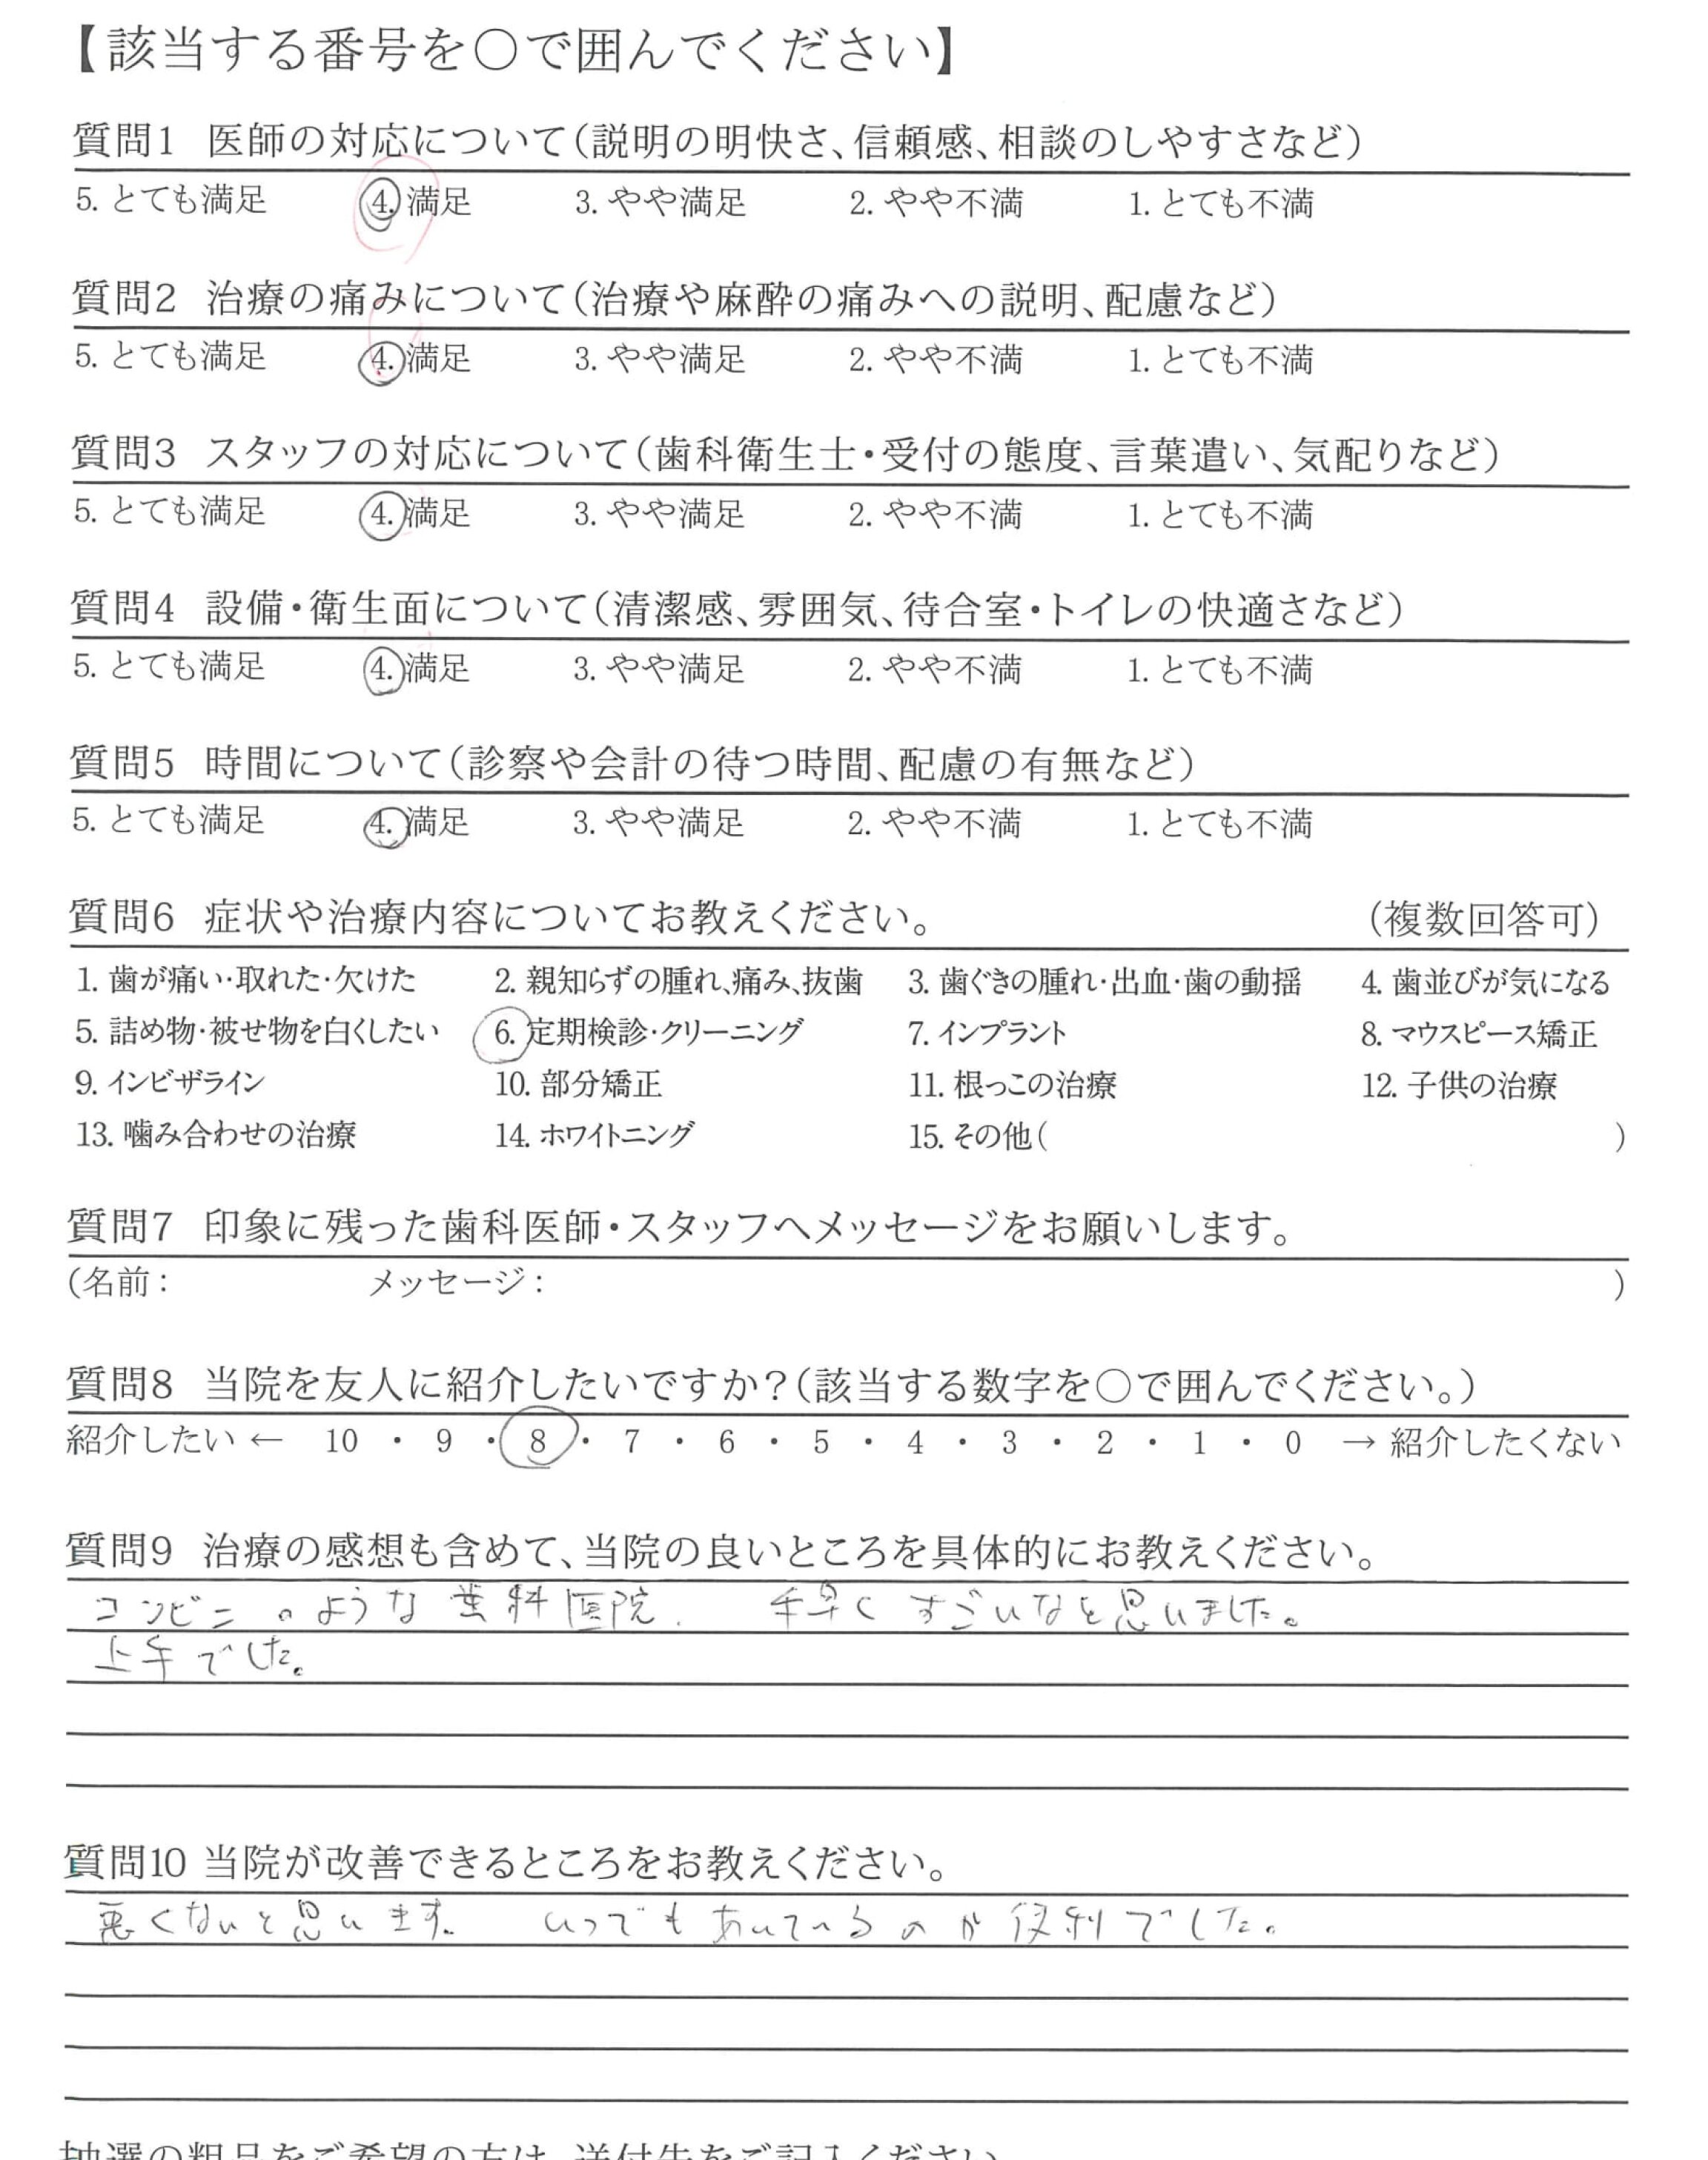 【該当する番号を○で囲んでください】
質問1 医師の対応について（説明の明快さ、信頼感、相談のしやすさなど）
5. とても満足 4. 満足 3. やや満足 2. やや不満 1. とても不満
質問2 治療の痛みについて（治療や麻酔の痛みへの説明、配慮など）
5. とても満足 4. 満足 3. やや満足 2. やや不満 1. とても不満
質問3 スタッフの対応について（歯科衛生士・受付の態度、言葉遣い、気配りなど）
5. とても満足 4. 満足 3. やや満足 2. やや不満 1. とても不満
質問4 設備・衛生面について（清潔感、雰囲気、待合室・トイレの快適さなど）
5. とても満足 4. 満足 3. やや満足 2. やや不満 1. とても不満
質問5 時間について（診察や会計の待つ時間、配慮の有無など）
5. とても満足 4. 満足 3. やや満足 2. やや不満 1. とても不満
質問6 症状や治療内容についてお教えください。 （複数回答可）
1. 歯が痛い・取れた・欠けた 2. 親知らずの腫れ、痛み、抜歯 3. 歯ぐきの腫れ・出血・歯の動揺 4. 歯並びが気になる
5. 詰め物・被せ物を白くしたい 6. 定期検診・クリーニング 7. インプラント 8. マウスピース矯正
9. インビザライン 10. 部分矯正 11. 根っこの治療 12. 子供の治療
13. 噛み合わせの治療 14. ホワイトニング 15. その他（ ）
質問7 印象に残った歯科医師・スタッフへメッセージをお願いします。
（名前： メッセージ： ）
質問8 当院を友人に紹介したいですか？（該当する数字を○で囲んでください。）
紹介したい ← 10 ・ 9 ・ 8 ・ 7 ・ 6 ・ 5 ・ 4 ・ 3 ・ 2 ・ 1 ・ 0 → 紹介したくない
質問9 治療の感想も含めて、当院の良いところを具体的にお教えください。
コンビニのような歯科医院. 手早くすごいなと思いました。
上手でした。
質問10 当院が改善できるところをお教えください。
悪くないと思います. いつでもあいているのが便利でした。
抽選の粗品をご希望の方は、送付先をご記入ください